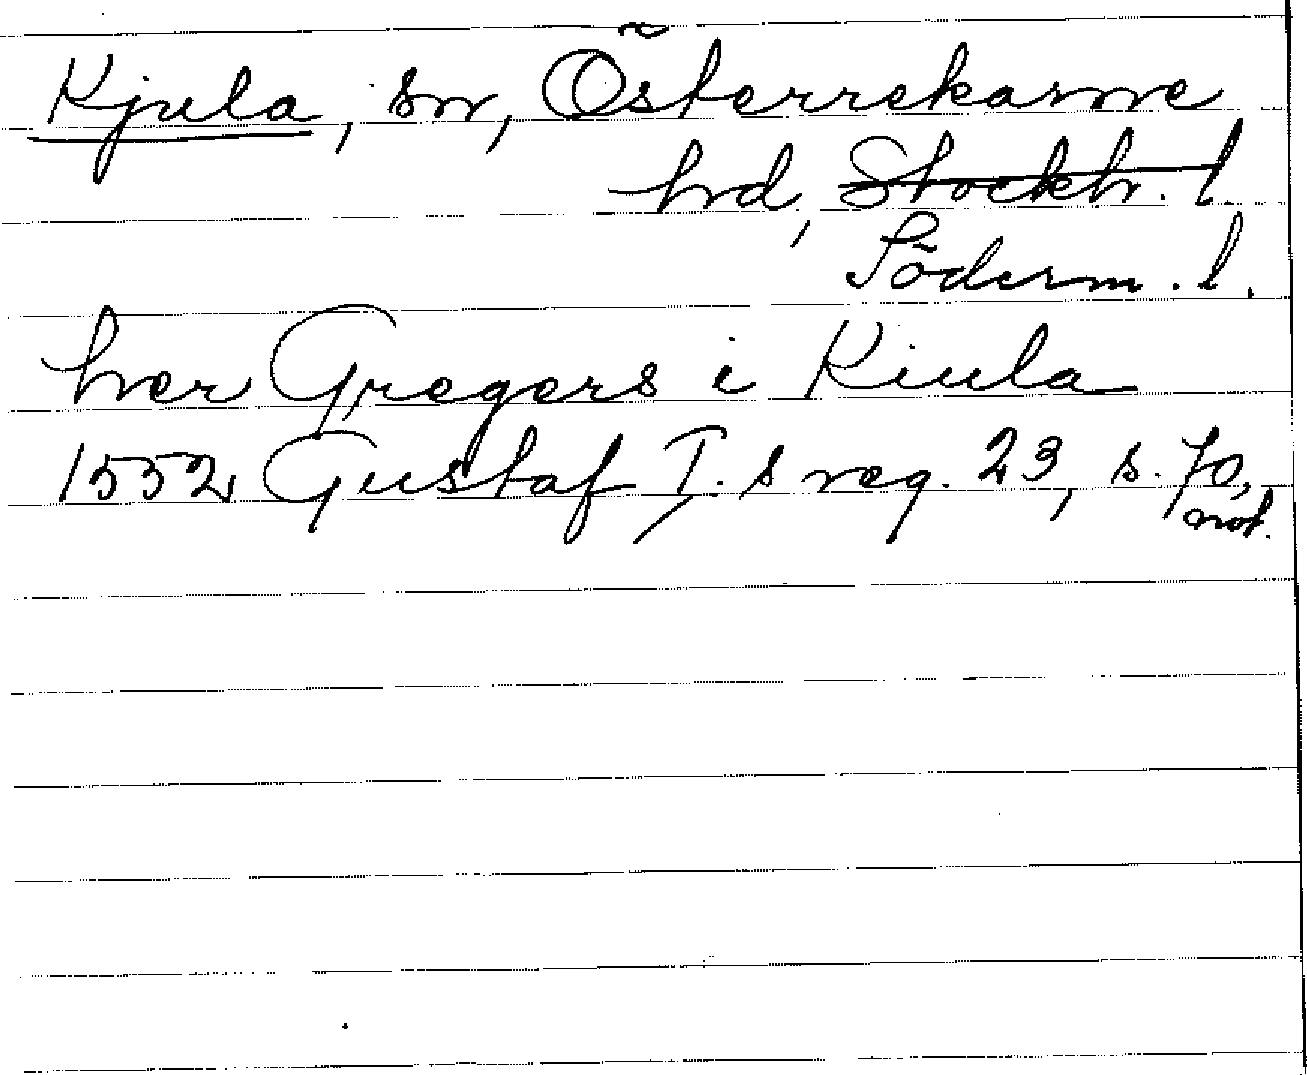 Kjula, sn, Österrekarne
hd, Stockh. l.
Söderm. l.
her Gregers i Kiula
1552 Gustaf I.s reg. 23, s. 70,
not.